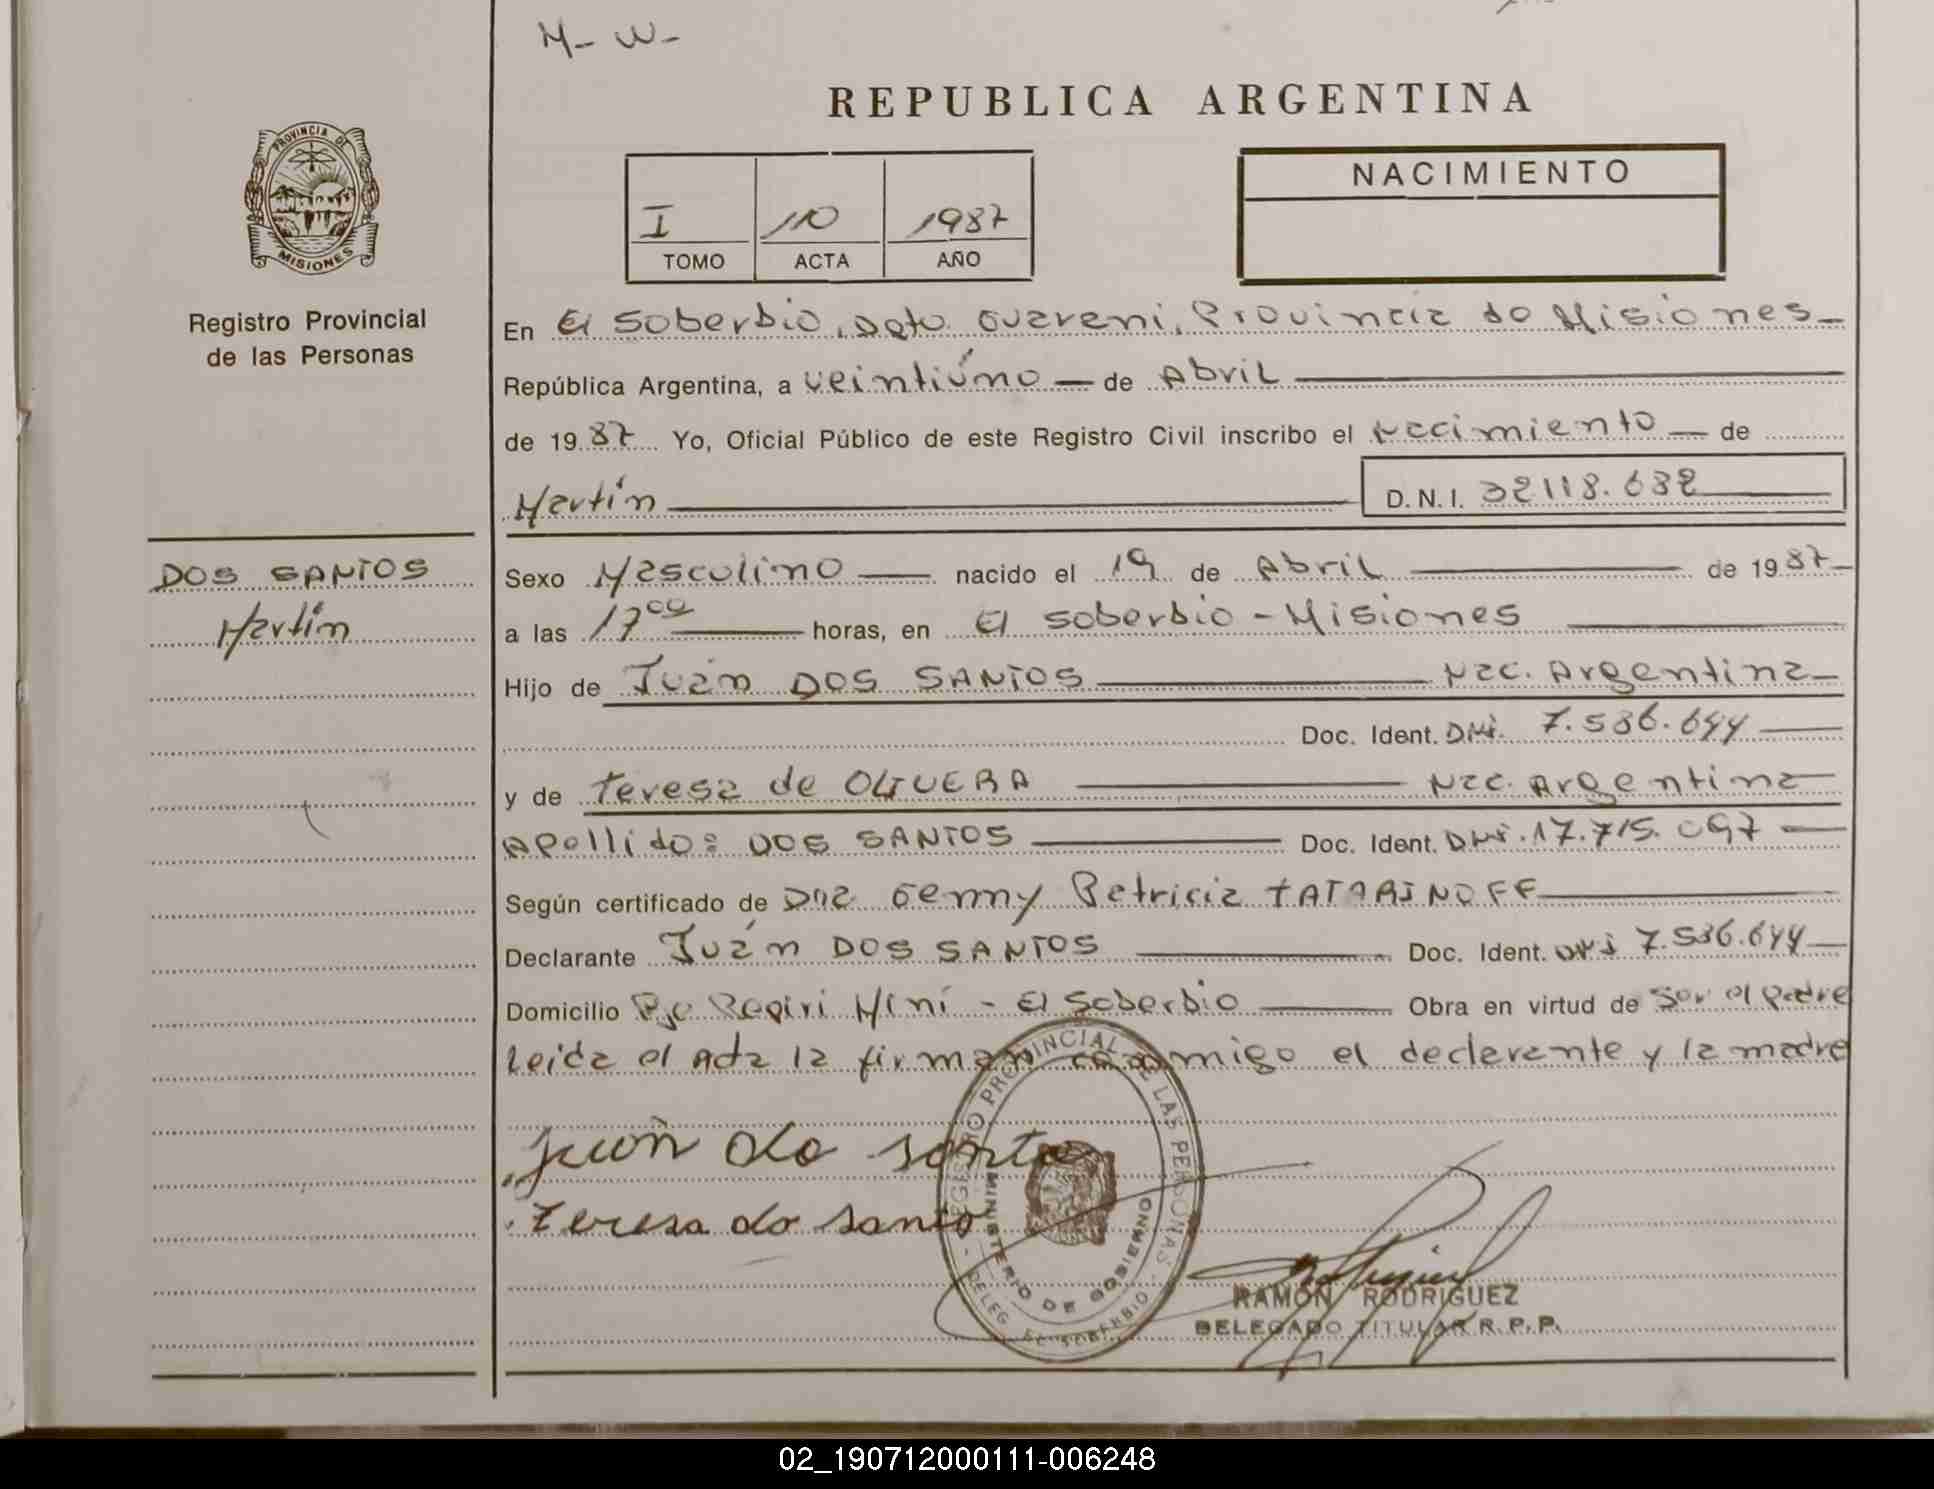 M- W-
REPUBLICA ARGENTINA
PROVINCIA DE
MISIONES
Registro Provincial
de las Personas
I 110 1987
TOMO ACTA AÑO
NACIMIENTO
En El Soberbio, Dpto. Guarani, Provincia de Misiones
República Argentina, a veintiúno de Abril
de 1987 Yo, Oficial Público de este Registro Civil inscribo el Nacimiento de
Martín D.N.I. 32118.632
DOS SANTOS
Martín
Sexo Masculino nacido el 19 de Abril de 1987
a las 17 horas, en El Soberbio - Misiones
Hijo de Juán DOS SANTOS Nac. Argentina
Doc. Ident. DNI. 7.536.644
y de Teresa de OLIVERA Nac. Argentina
Apellido: DOS SANTOS Doc. Ident. DNI. 17.715.097
Según certificado de Dra Genny Patricia TATARINOFF
Declarante Juán DOS SANTOS Doc. Ident. DNI 7.536.644
Domicilio Pje Pepiri Miní - El Soberbio Obra en virtud de Ser el padre
Leida el Acta la firman conmigo el declarante y la madre
juan do santo
teresa do santo
REGISTRO PROVINCIAL DE LAS PERSONAS
MINISTERIO DE GOBIERNO
DELEG. EL SOBERBIO
RAMON RODRIGUEZ
DELEGADO TITULAR R.P.P.
02_190712000111-006248